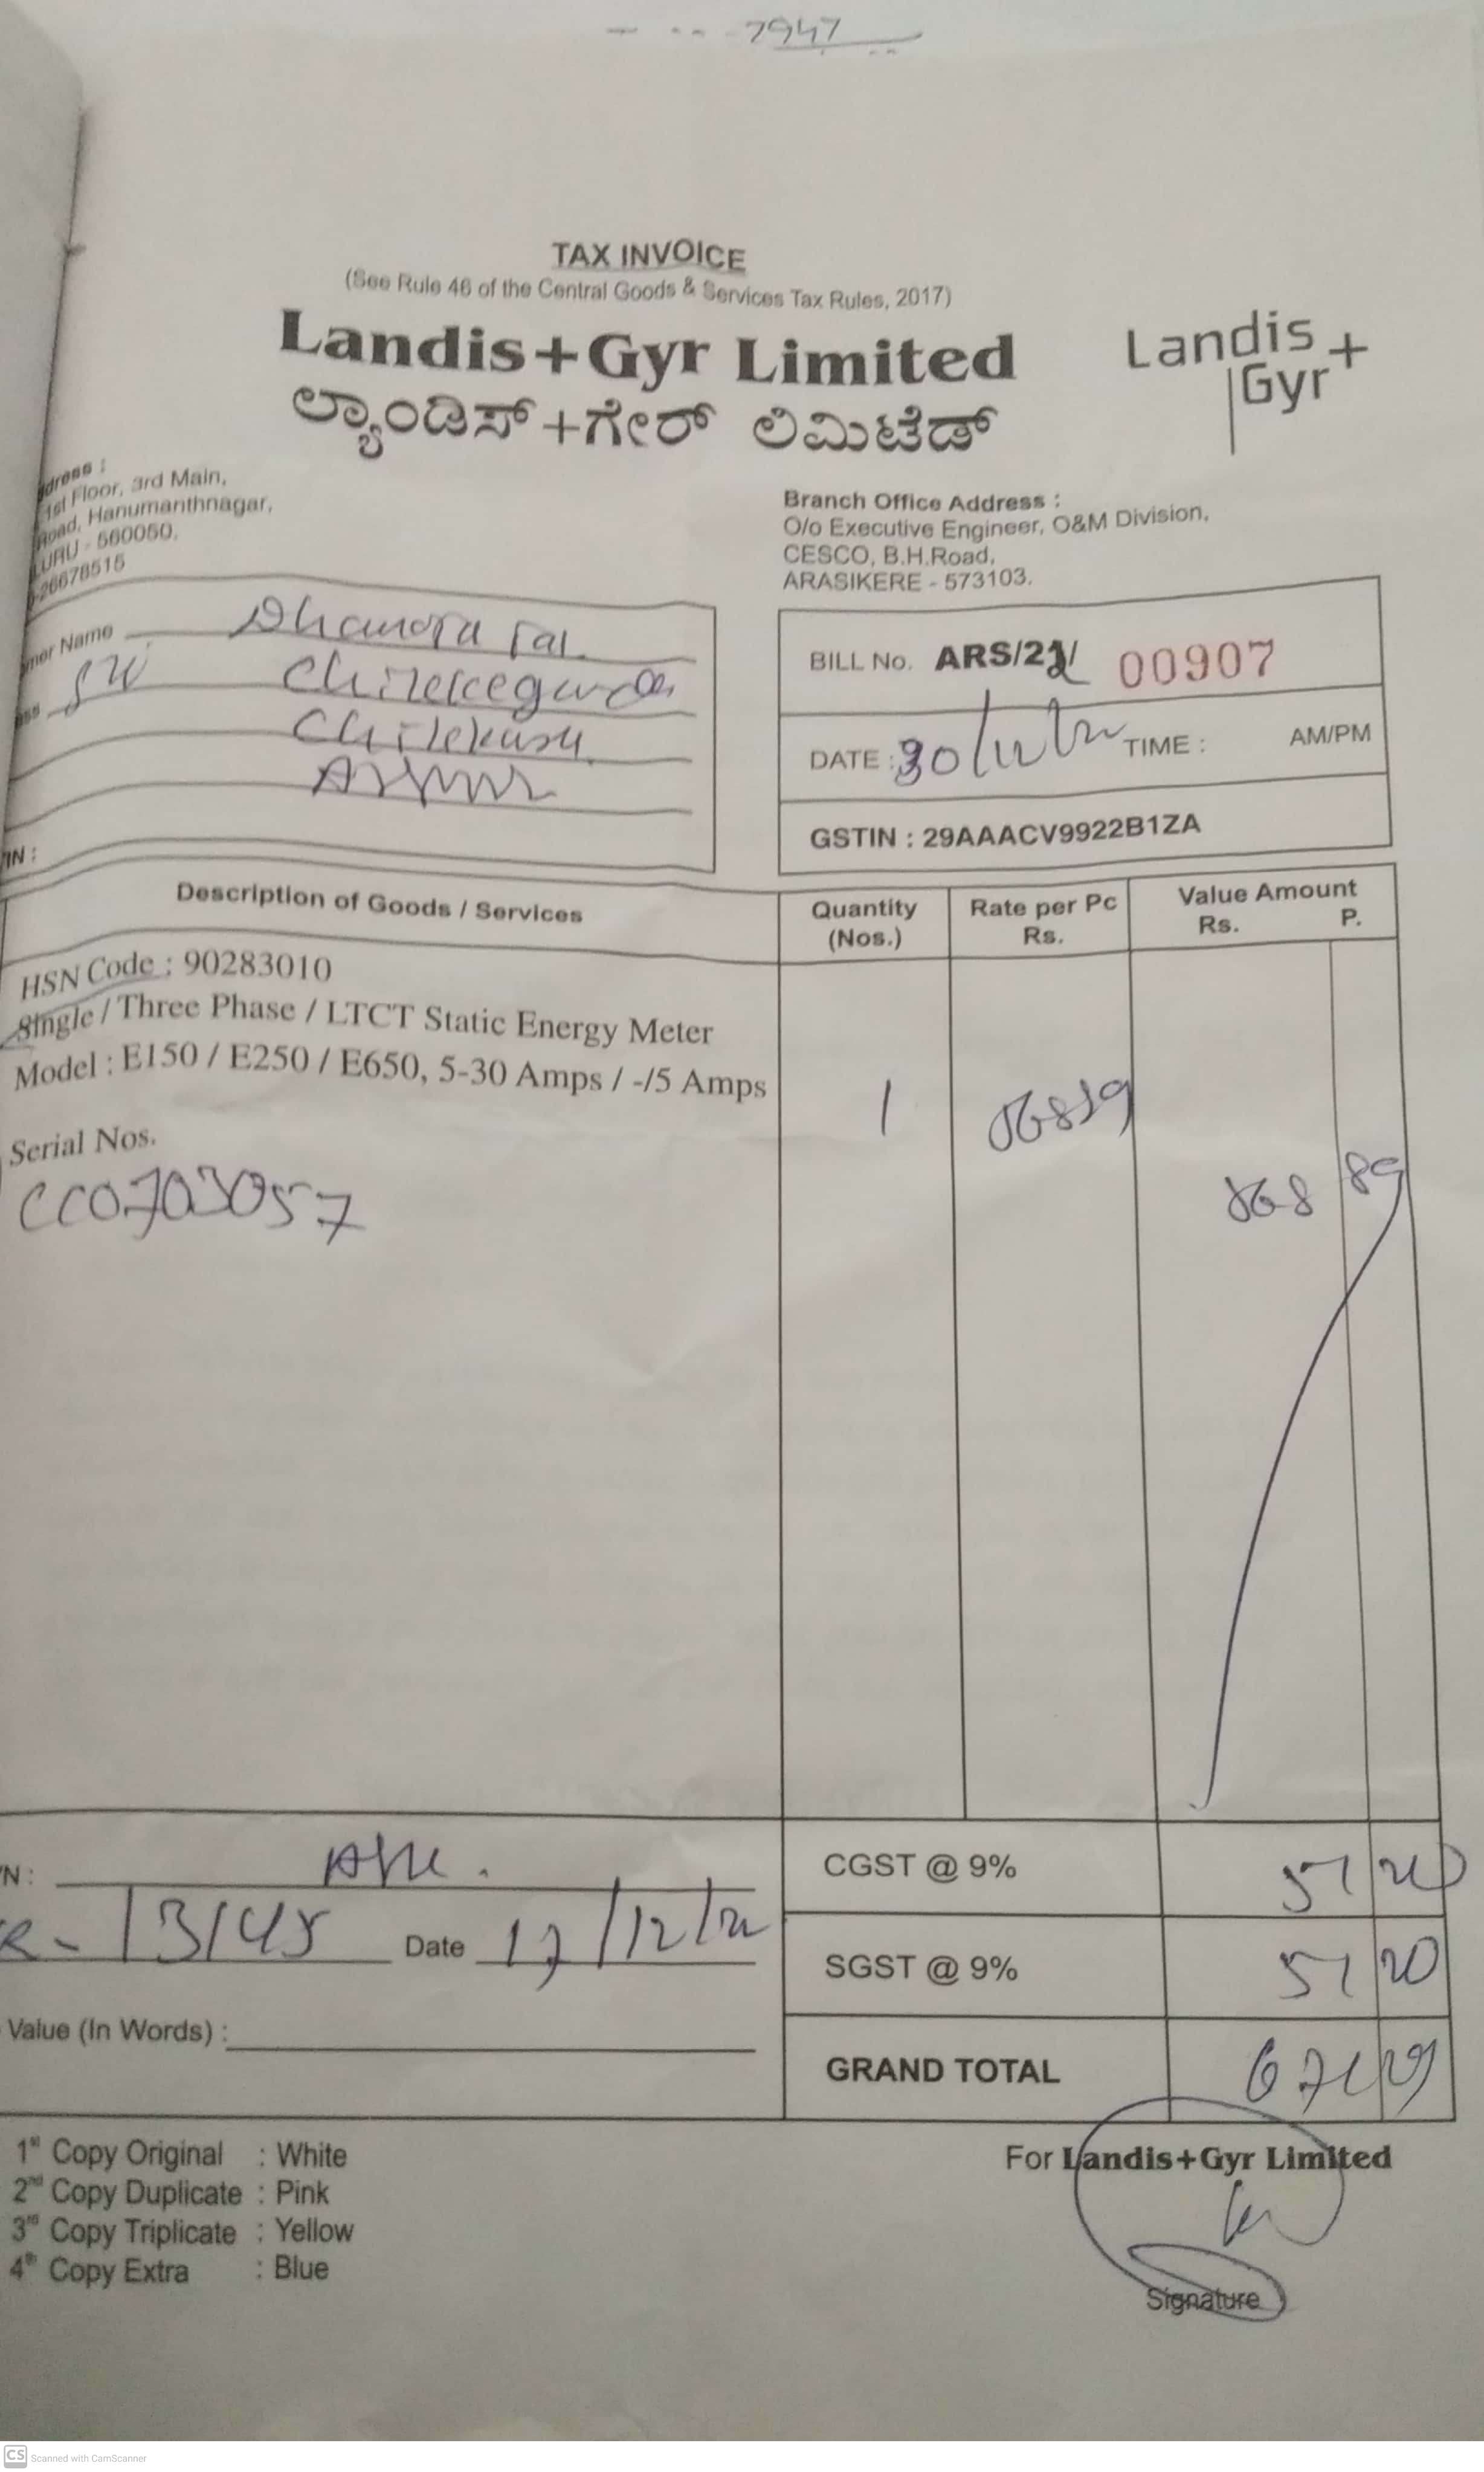 7947
TAX INVOICE
(See Rule 46 of the Central Goods & Services Tax Rules, 2017)
Landis+Gyr Limited
ಲ್ಯಾಂಡಿಸ್+ಗೇರ್ ಲಿಮಿಟೆಡ್
Landis+
Gyr
dress :
1st Floor, 3rd Main,
Road, Hanumanthnagar,
LURU - 560050.
-26678515
Branch Office Address :
O/o Executive Engineer, O&M Division,
CESCO, B.H.Road,
ARASIKERE - 573103.
mer Name
ess
IN :
BILL No. ARS/22/ 00907
DATE : 30/ TIME : AM/PM
GSTIN : 29AAACV9922B1ZA
Description of Goods / Services Quantity (Nos.) Rate per Pc Rs. Value Amount Rs. P.
HSN Code : 90283010
Single / Three Phase / LTCT Static Energy Meter
Model : E150 / E250 / E650, 5-30 Amps / -/5 Amps
1
Serial Nos.
CC0703057
N :
CGST @ 9%
R - 13145 Date 17/12/22
SGST @ 9% 51 20
Value (In Words) :
GRAND TOTAL
1st Copy Original : White
2nd Copy Duplicate : Pink
3rd Copy Triplicate : Yellow
4th Copy Extra : Blue
For Landis+Gyr Limited
Signature
CS Scanned with CamScanner